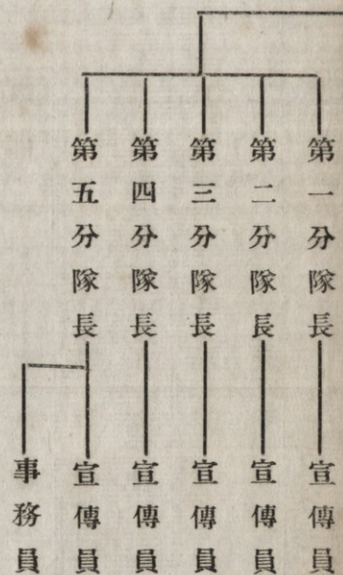 第一分隊長
第二分隊長
第三分隊長
第四分隊長
第五分隊長
宣傳員
宣傳員
宣傳員
宣傳員
宣傳員
事務員